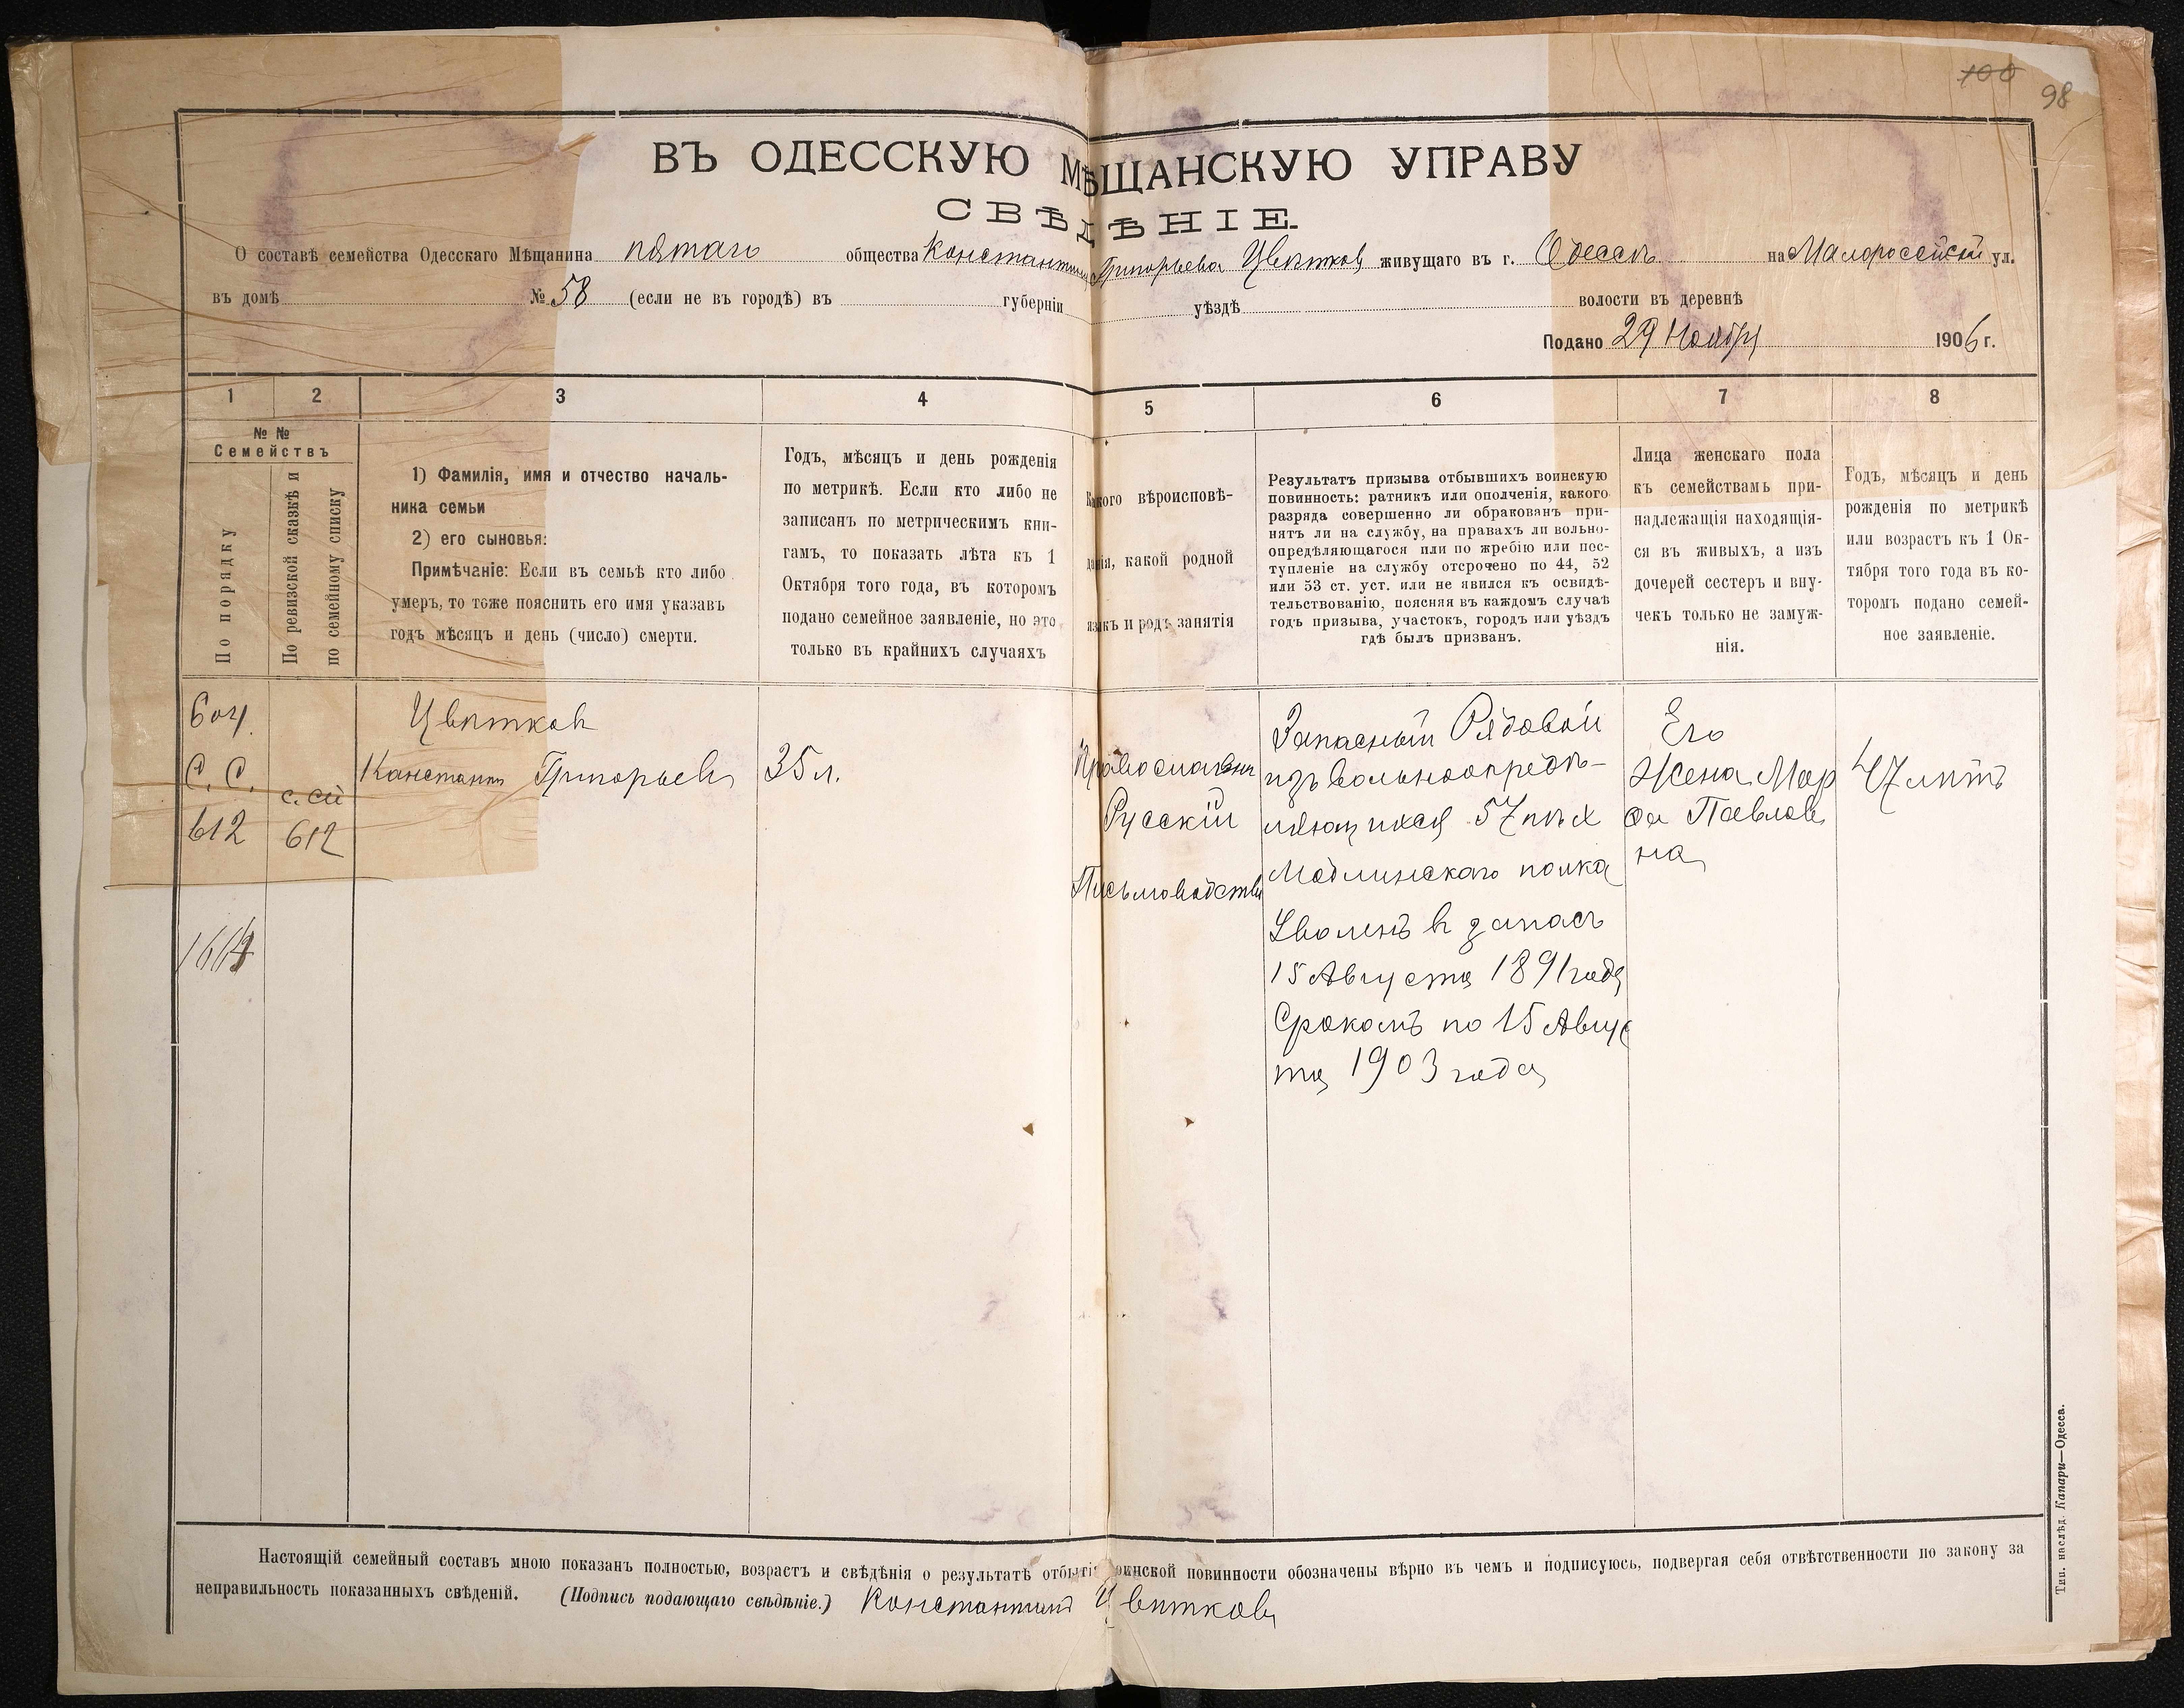 100
98
ВЪ ОДЕССКУЮ МѢЩАНСКУЮ УПРАВУ
СВѢДѢНІЕ.
О составѣ семейства Одесскаго Мѣщанина пятаго общества Григорьева живущаго въ г. Одессѣ на ул.
въ домѣ № 58 (если не въ городѣ) въ губерніи уѣздѣ волости въ деревнѣ
Подано 29 Ноября 1906 г.
1 2 3 4 5 6 7 8
№ № Семействъ
По порядку
По ревизской сказкѣ и
по семейному списку
1) Фамилія, имя и отчество началь-
ника семьи
2) его сыновья:
Примѣчаніе: Если въ семьѣ кто либо
умеръ, то тоже пояснить его имя указавъ
годъ мѣсяцъ и день (число) смерти.
Годъ, мѣсяцъ и день рожденія
по метрикѣ. Если кто либо не
записанъ по метрическимъ кни-
гамъ, то показать лѣта къ 1
Октября того года, въ которомъ
подано семейное заявленіе, но это
только въ крайнихъ случаяхъ
Какого вѣроисповѣ-
данія, какой родной
языкъ и родъ занятія
Результатъ призыва отбывшихъ воинскую
повинность: ратникъ или ополченія, какого
разряда совершенно ли обракованъ при-
нятъ ли на службу, на правахъ ли вольно-
опредѣляющагося или по жребію или пос-
тупленіе на службу отсрочено по 44, 52
или 53 ст. уст. или не явился къ освидѣ-
тельствованію, поясняя въ каждомъ случаѣ
годъ призыва, участокъ, городъ или уѣздъ
гдѣ былъ призванъ.
Лица женскаго пола
къ семействамъ при-
надлежащія находящія-
ся въ живыхъ, а изъ
дочерей сестеръ и вну-
чекъ только не замуж-
нія.
Годъ, мѣсяцъ и день
рожденія по метрикѣ
или возрастъ къ 1 Ок-
тября того года въ ко-
торомъ подано семей-
ное заявленіе.
С. С.
612
612
Цвѣтковъ
Григорьевъ
35 л.
Русскій
Запасный Рядовой
изъ вольноопредѣ-
ляющихся 57 пѣх
Модлинскаго полка
Уволенъ в запасъ
15 Августа 1891 года
Срокомъ по 15 Авгус
та 1903 года
Его
Жена Мар
фа Павлов
на
47 лѣтъ
Настоящій семейный составъ мною показанъ полностью, возрастъ и свѣдѣнія о результатѣ отбытія воинской повинности обозначены вѣрно въ чемъ и подписуюсь, подвергая себя отвѣтственности по закону за
неправильность показанныхъ свѣденій. (Подпись подающаго свѣдѣніе.) Константинъ Цвѣтковъ
Тип. наслѣд. Капари—Одесса.